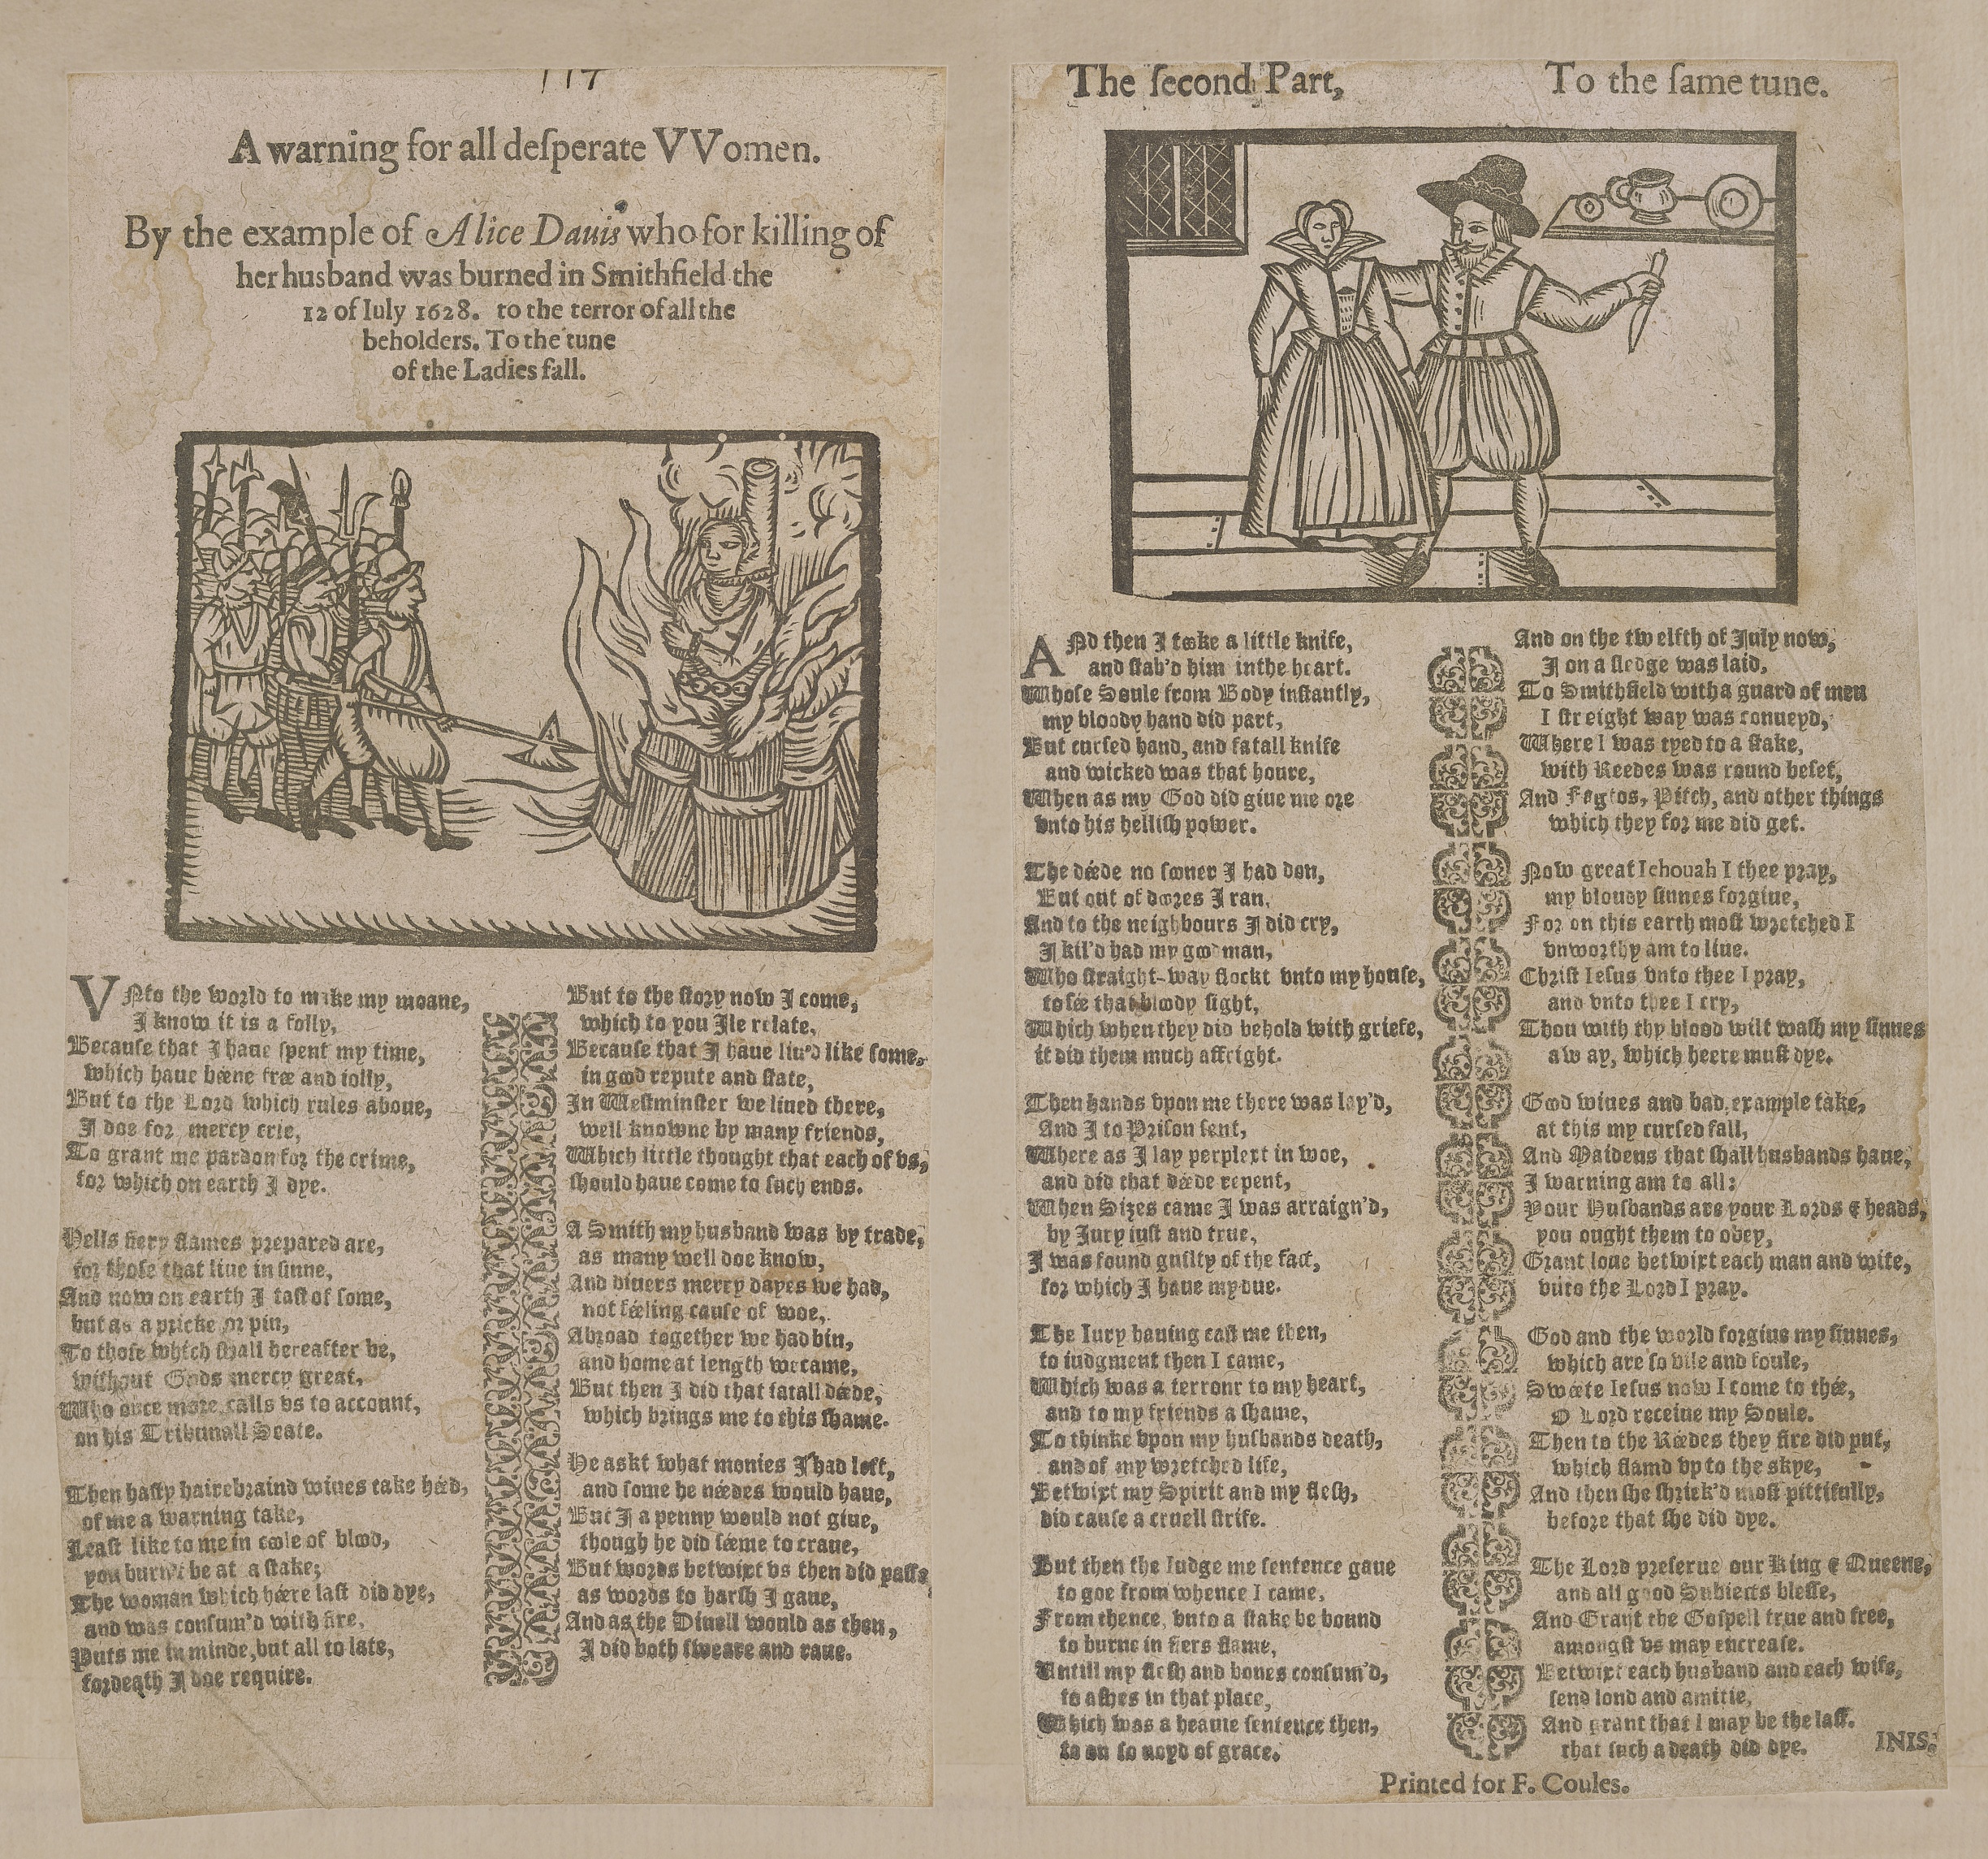 117
A warning for all deſperate VVomen.
By the example of Alice Dauis who for killing of
her husband was burned in Smithfield the
12 of Iuly 1628. to the terror of all the
beholders. To the tune
of the Ladies fall.
VNto the world to make my moane,
I know it is a folly,
Becauſe that I haue ſpent my time,
which haue beene free and iolly,
But to the Lord which rules aboue,
I doe for mercy crie,
To grant me pardon for the crime,
for which on earth I dye.
Hells fiery flames prepared are,
for thoſe that liue in ſinne,
And now on earth I taſt of ſome,
but as a pricke or pin,
To thoſe which ſhall hereafter be,
without Gods mercy great,
Who once more calls vs to account,
on his Tribunall Seate.
Then haſty hairebraind wiues take heed,
of me a warning take,
Leaſt like to me in coole of blood,
you burn't be at a ſtake;
The woman which heere laſt did dye,
and was conſum'd with fire,
Puts me in minde, but all to late,
for death I doe require.
But to the ſtory now I come,
which to you Ile relate,
Becauſe that I haue liu'd like ſome,
in good repute and ſtate,
In Weſtminſter we liued there,
well knowne by many friends,
Which little thought that each of vs,
ſhould haue come to ſuch ends.
A Smith my husband was by trade,
as many well doe know,
And diuers merry dayes we had,
not feeling cauſe of woe,
Abroad together we had bin,
and home at length we came,
But then I did that fatall deede,
which brings me to this ſhame.
He askt what monies I had left,
and ſome he needes would haue,
But I a penny would not giue,
though he did ſeeme to craue,
But words betwixt vs then did paſſe,
as words to harſh I gaue,
And as the Diuell would as then,
I did both ſweare and raue.
The ſecond Part, To the ſame tune.
ANd then I tooke a little knife,
and ſtab'd him in the heart.
Whoſe Soule from Body inſtantly,
my bloody hand did part,
But curſed hand, and fatall knife
and wicked was that houre,
When as my God did giue me ore
vnto his helliſh power.
The deede no ſooner I had don,
But out of doores I ran,
And to the neighbours I did cry,
I kil'd had my good man,
Who ſtraight-way flockt vnto my houſe,
to ſee that bloody ſight,
Which when they did behold with griefe,
it did them much affright.
Then hands vpon me there was lay'd,
And I to Priſon ſent,
Where as I lay perplext in woe,
and did that deede repent,
When Sizes came I was arraign'd,
by Jury iuſt and true,
I was found guilty of the fact,
for which I haue my due.
The Iury hauing caſt me then,
to iudgment then I came,
Which was a terronr to my heart,
and to my friends a ſhame,
To thinke vpon my huſbands death,
and of my wretched life,
Betwixt my Spirit and my fleſh,
did cauſe a cruell ſtrife.
But then the Iudge me ſentence gaue
to goe from whence I came,
From thence, vnto a ſtake be bound
to burne in fiers flame,
Untill my fleſh and bones conſum'd,
to aſhes in that place,
Which was a heauie ſentence then,
to on ſo uoyd of grace.
And on the twelfth of July now,
I on a ſledge was laid,
To Smithfield with a guard of men
I ſtreight way was conueyd,
Where I was tyed to a ſtake,
with Reedes was round beſet,
And Fagtos, Pitch, and other things
which they for me did get.
Now great Iehouah I thee pray,
my bloudy ſinnes forgiue,
For on this earth moſt wretched I
vnworthy am to liue.
Chriſt Ieſus vnto thee I pray,
and vnto thee I cry,
Thou with thy blood wilt waſh my ſinnes
away, which heere muſt dye.
Good wiues and bad, example take,
at this my curſed fall,
And Maidens that ſhall husbands haue,
I warning am to all:
Your Husbands are your Lords & heads,
you ought them to obey,
Grant loue betwixt each man and wife,
vnto the Lord I pray.
God and the world forgiue my ſinnes,
which are ſo vile and foule,
Sweete Ieſus now I come to thee,
O Lord receiue my Soule.
Then to the Reedes they fire did put,
which flamd vp to the skye,
And then ſhe ſhriek'd moſt pittifully,
before that ſhe did dye.
The Lord preſerue our King & Queene,
and all good Subiects bleſſe,
And Grant the Goſpell true and free,
amongſt vs may encreaſe.
Betwixt each husband and each wife,
ſend loud and amitie,
And grant that I may be the laſt.
that ſuch a death did dye.
INIS.
Printed for F. Coules.